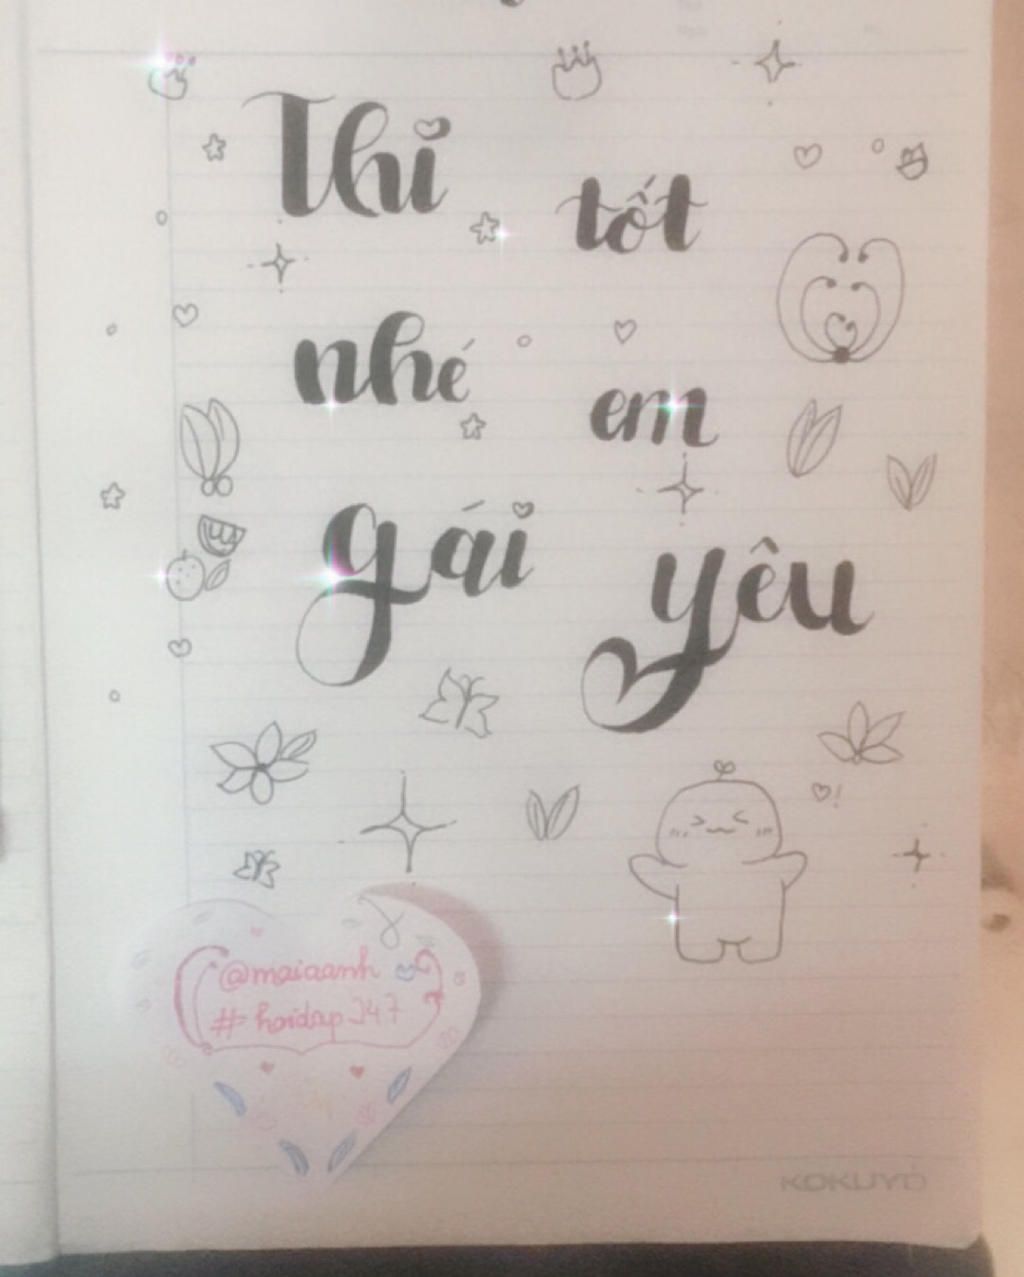 Thi tốt
nhé em
gái yêu
@maiaanh
# hoidap247
KOKUYO